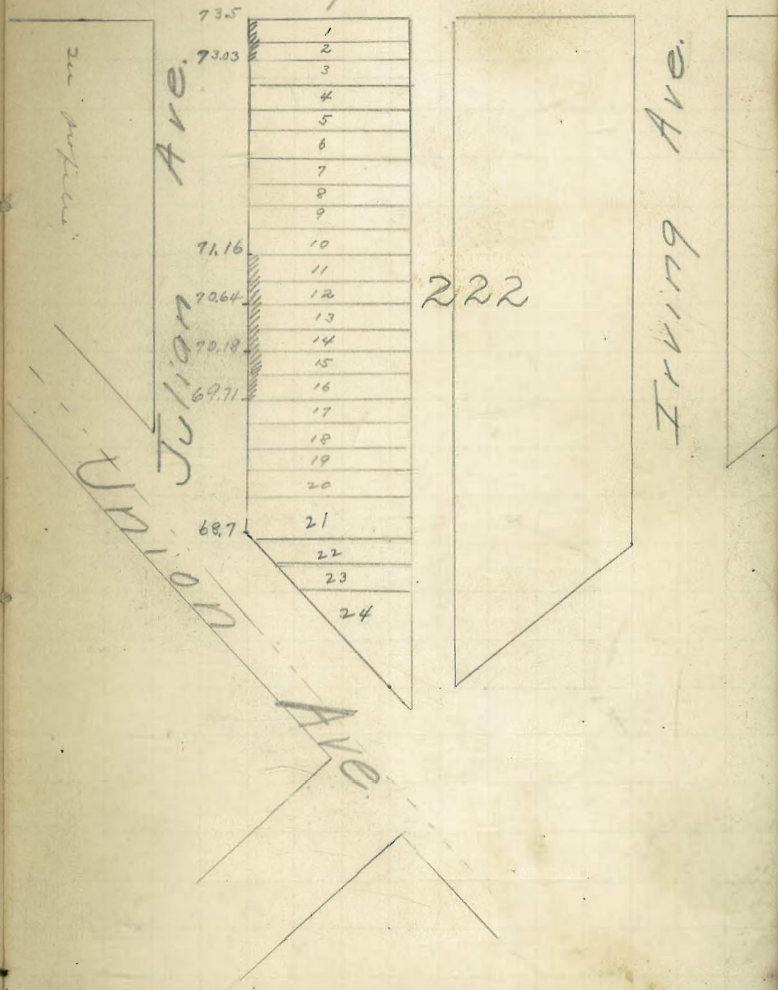 73.5
73.03
71.16
70.64
70.18
69.71
68.7
1
2
3
4
5
6
7
8
9
10
11
12
13
14
15
16
17
18
19
20
21
22
23
24
222
Julian Ave.
Irving Ave.
Union Ave.